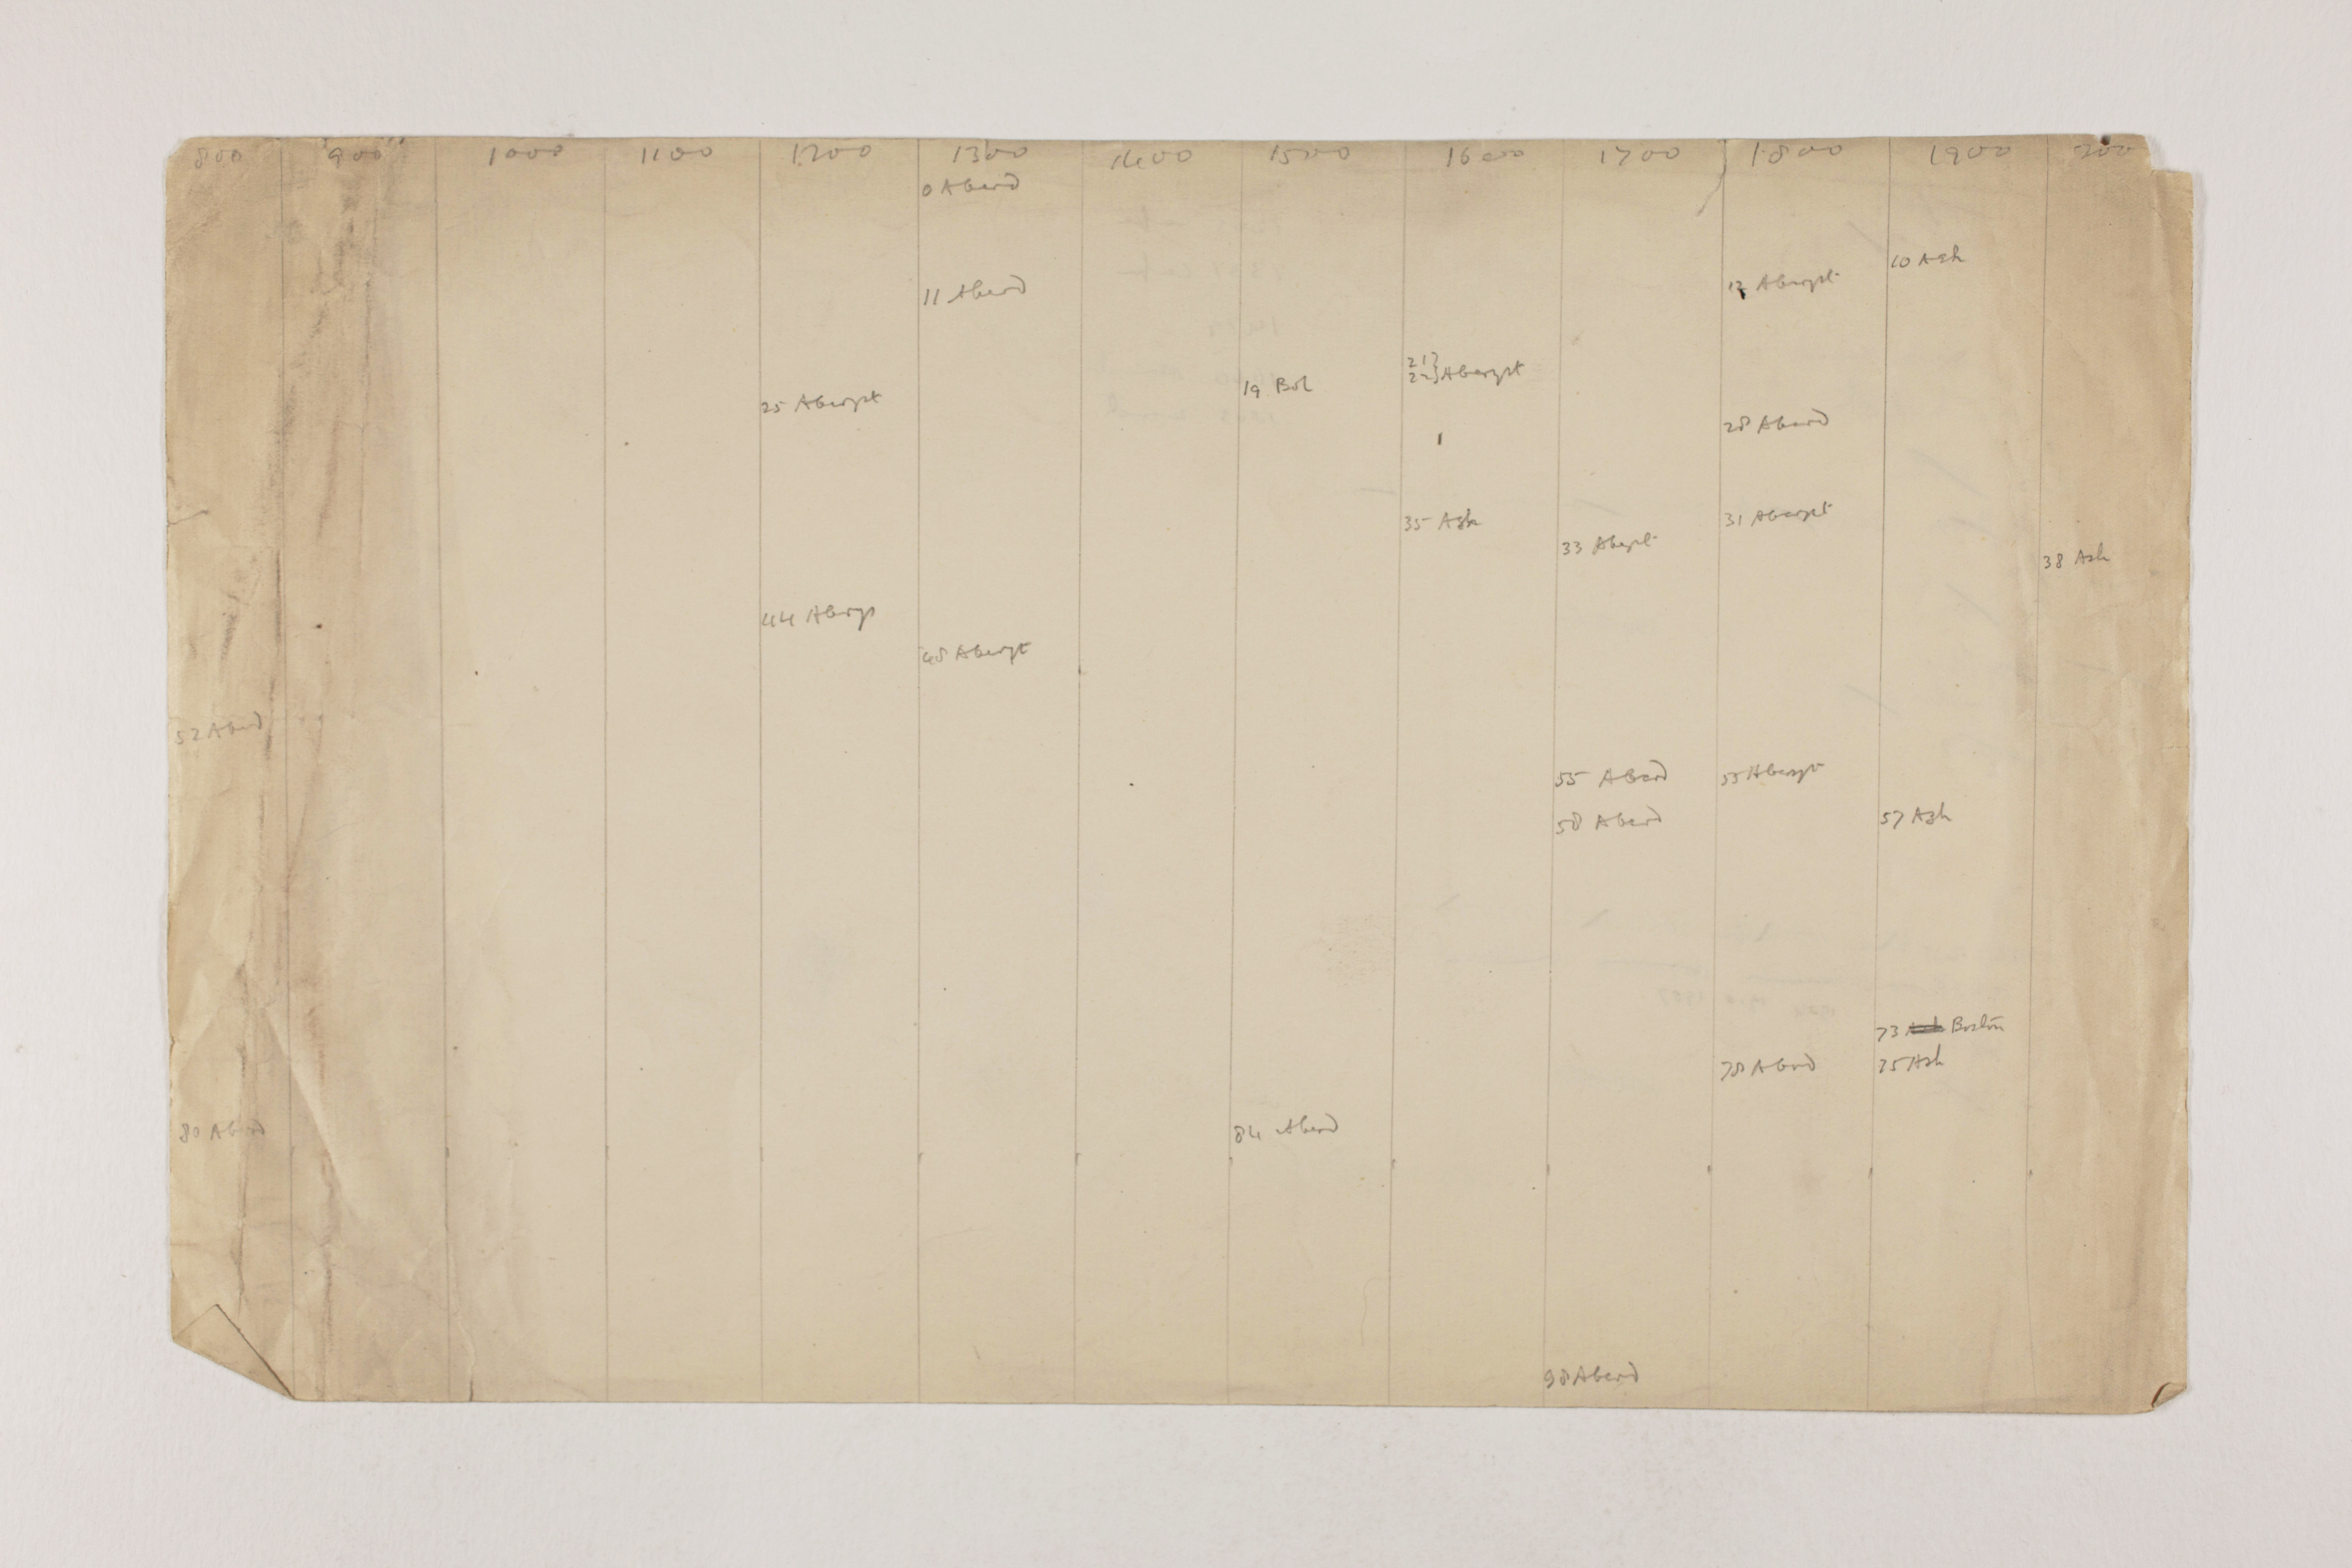 800 900 1000 1100 1200 1300 1400 1500 1600 1700 1800 1900 200
0 Aberd
10 Ash
11 Aberd
12 Aberypt
21}
22} Aberypt
19 Bol
25 Aberypt
28 Aberd
35 Ash
31 Aberypt
33 Abept
38 Ash
44 Aberyp
48 Aberypt
52 Aberd
55 Aberd
55 Aberypt
58 Aberd
57 Ash
73 Boston
78 Aberd
75 Ash
80 Aberd
84 Aberd
98 Aberd